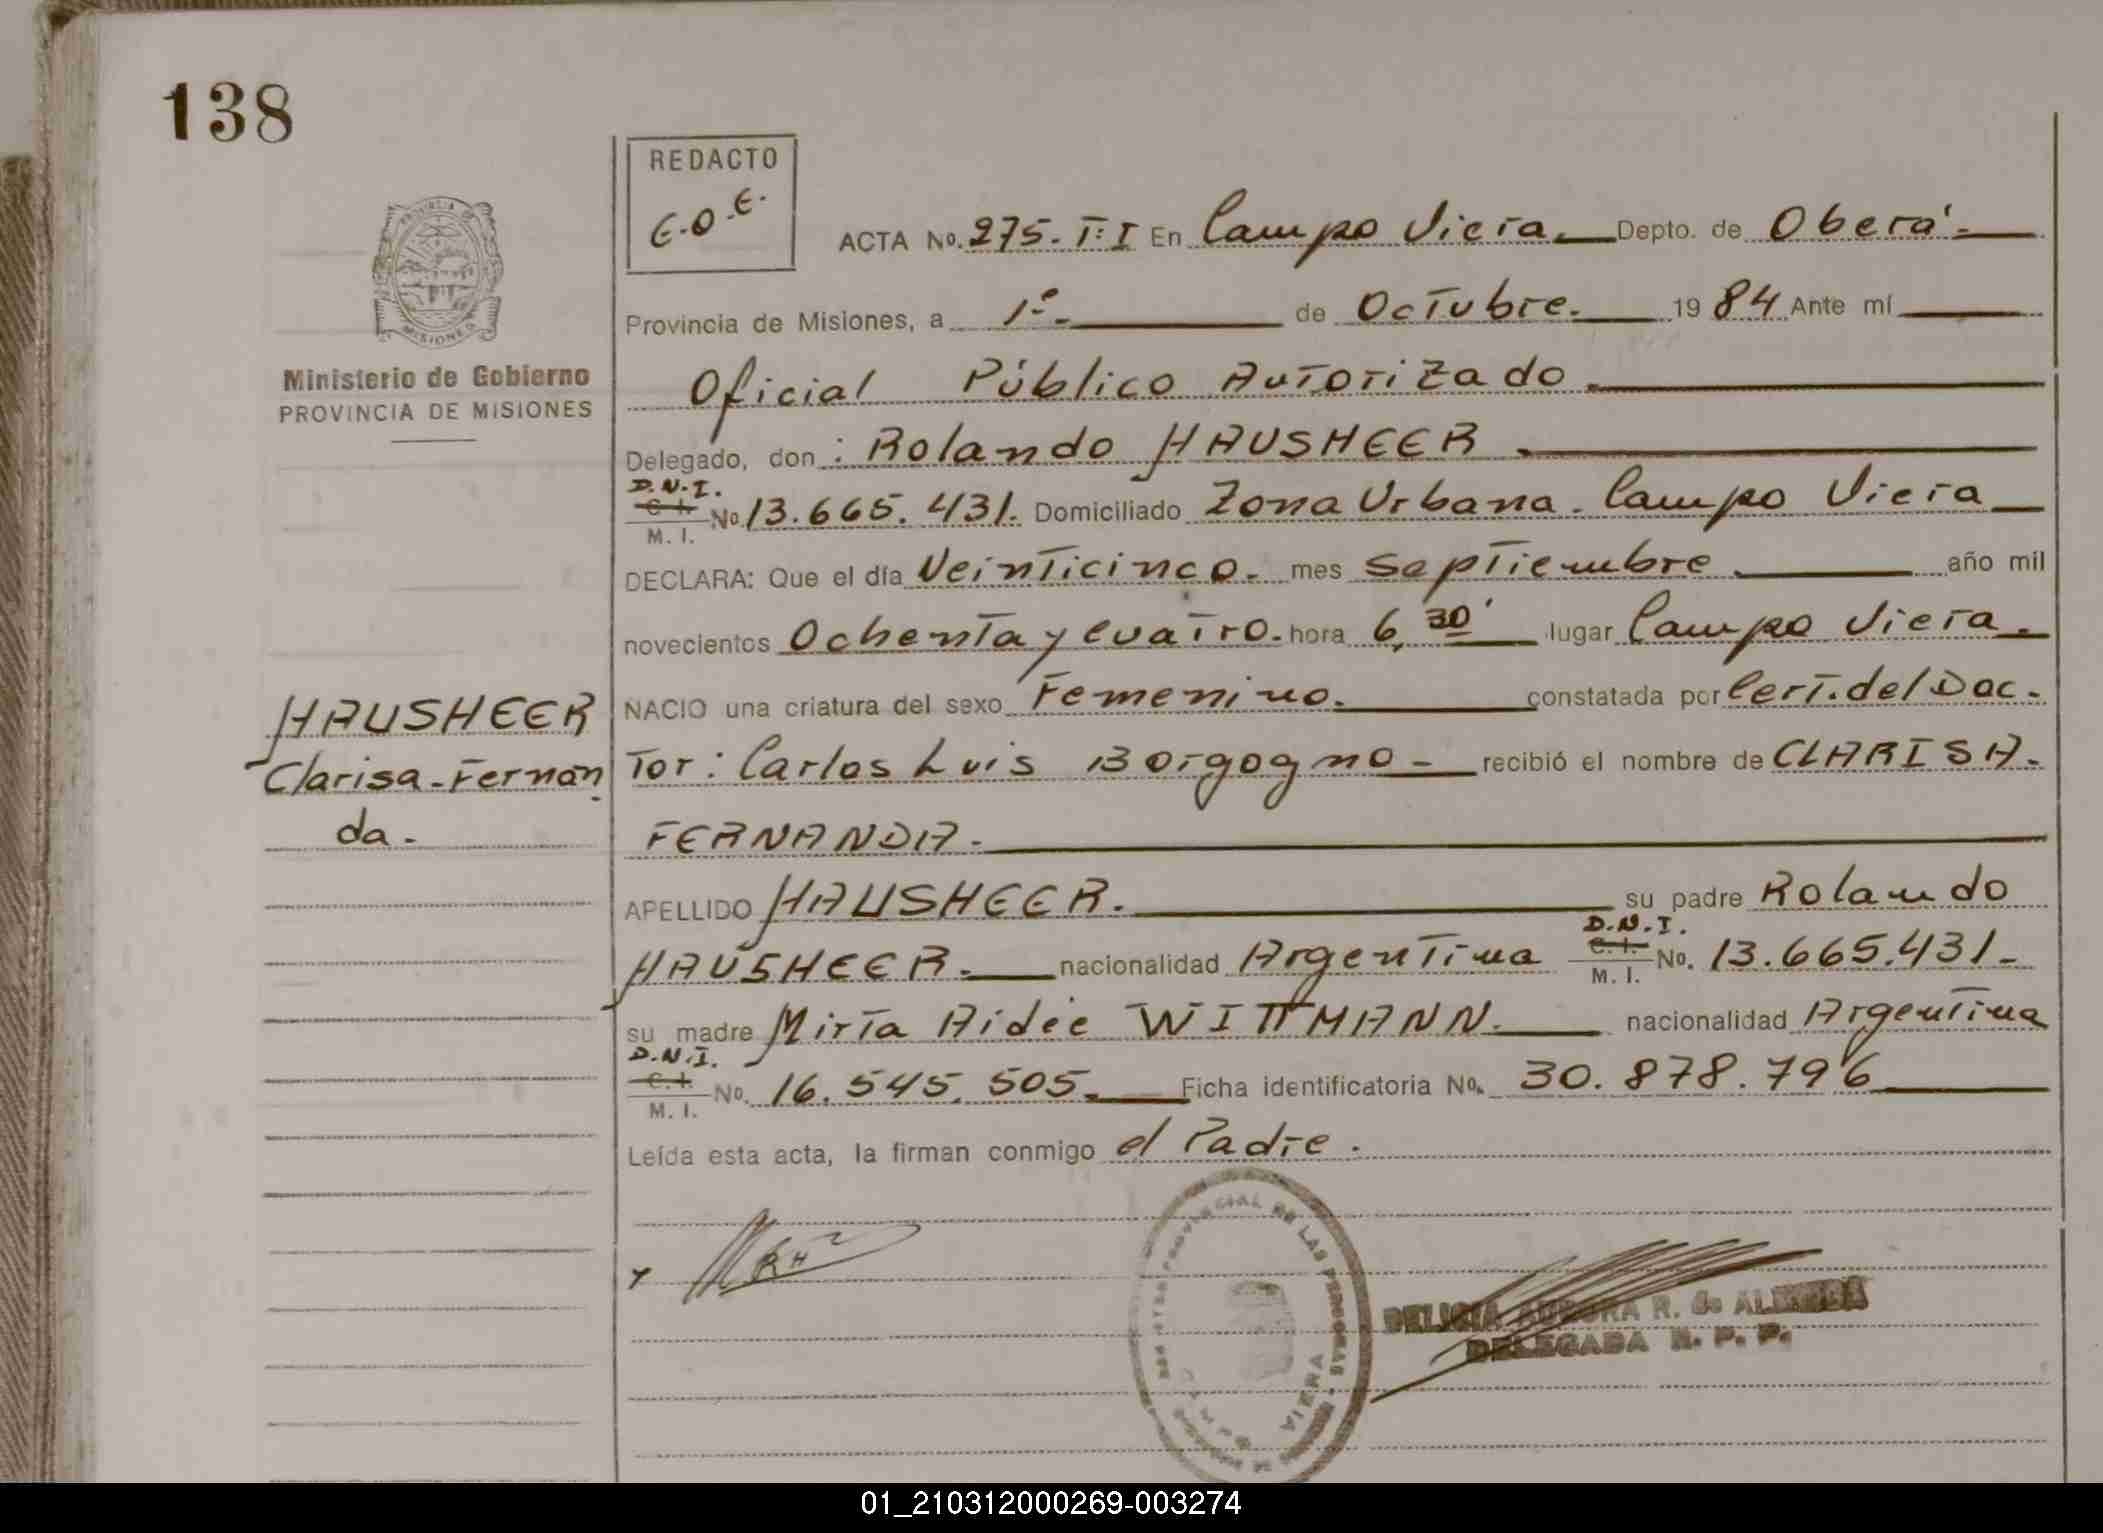 138
REDACTO
E.O.E.
PROVINCIA DE
MISIONES
Ministerio de Gobierno
PROVINCIA DE MISIONES
HAUSHEER
Clarisa-Fernan
da.
ACTA No. 275. T:I En Campo Viera. Depto. de Oberá.
Provincia de Misiones, a 1º. de Octubre. 1984 Ante mí
Oficial Público Autorizado.
Delegado, don: Rolando HAUSHEER.
D.N.I.
C. I. No 13.665.431. Domiciliado Zona Urbana. Campo Viera
M. I.
DECLARA: Que el día Veinticinco. mes septiembre. año mil
novecientos Ochenta y cuatro. hora 6,30' lugar Campo Viera.
NACIO una criatura del sexo Femenino. constatada por Cert. del Doc-
tor: Carlos Luis Borgogno - recibió el nombre de CLARISA-
FERNANDA.
APELLIDO HAUSHEER. su padre Rolando
D.N.I.
HAUSHEER. nacionalidad Argentina C. I. No. 13.665.431-
M. I.
su madre Mirta Aidée WITTMANN. nacionalidad Argentina
D.N.I.
C. I. No. 16.545.505. Ficha identificatoria No. 30.878.796
M. I.
Leída esta acta, la firman conmigo el Padre.
PROVINCIAL DE LAS PERSONAS
CAMPO VIERA
DELICIA AURORA R. de
DELEGADA R. P. P.
01_210312000269-003274